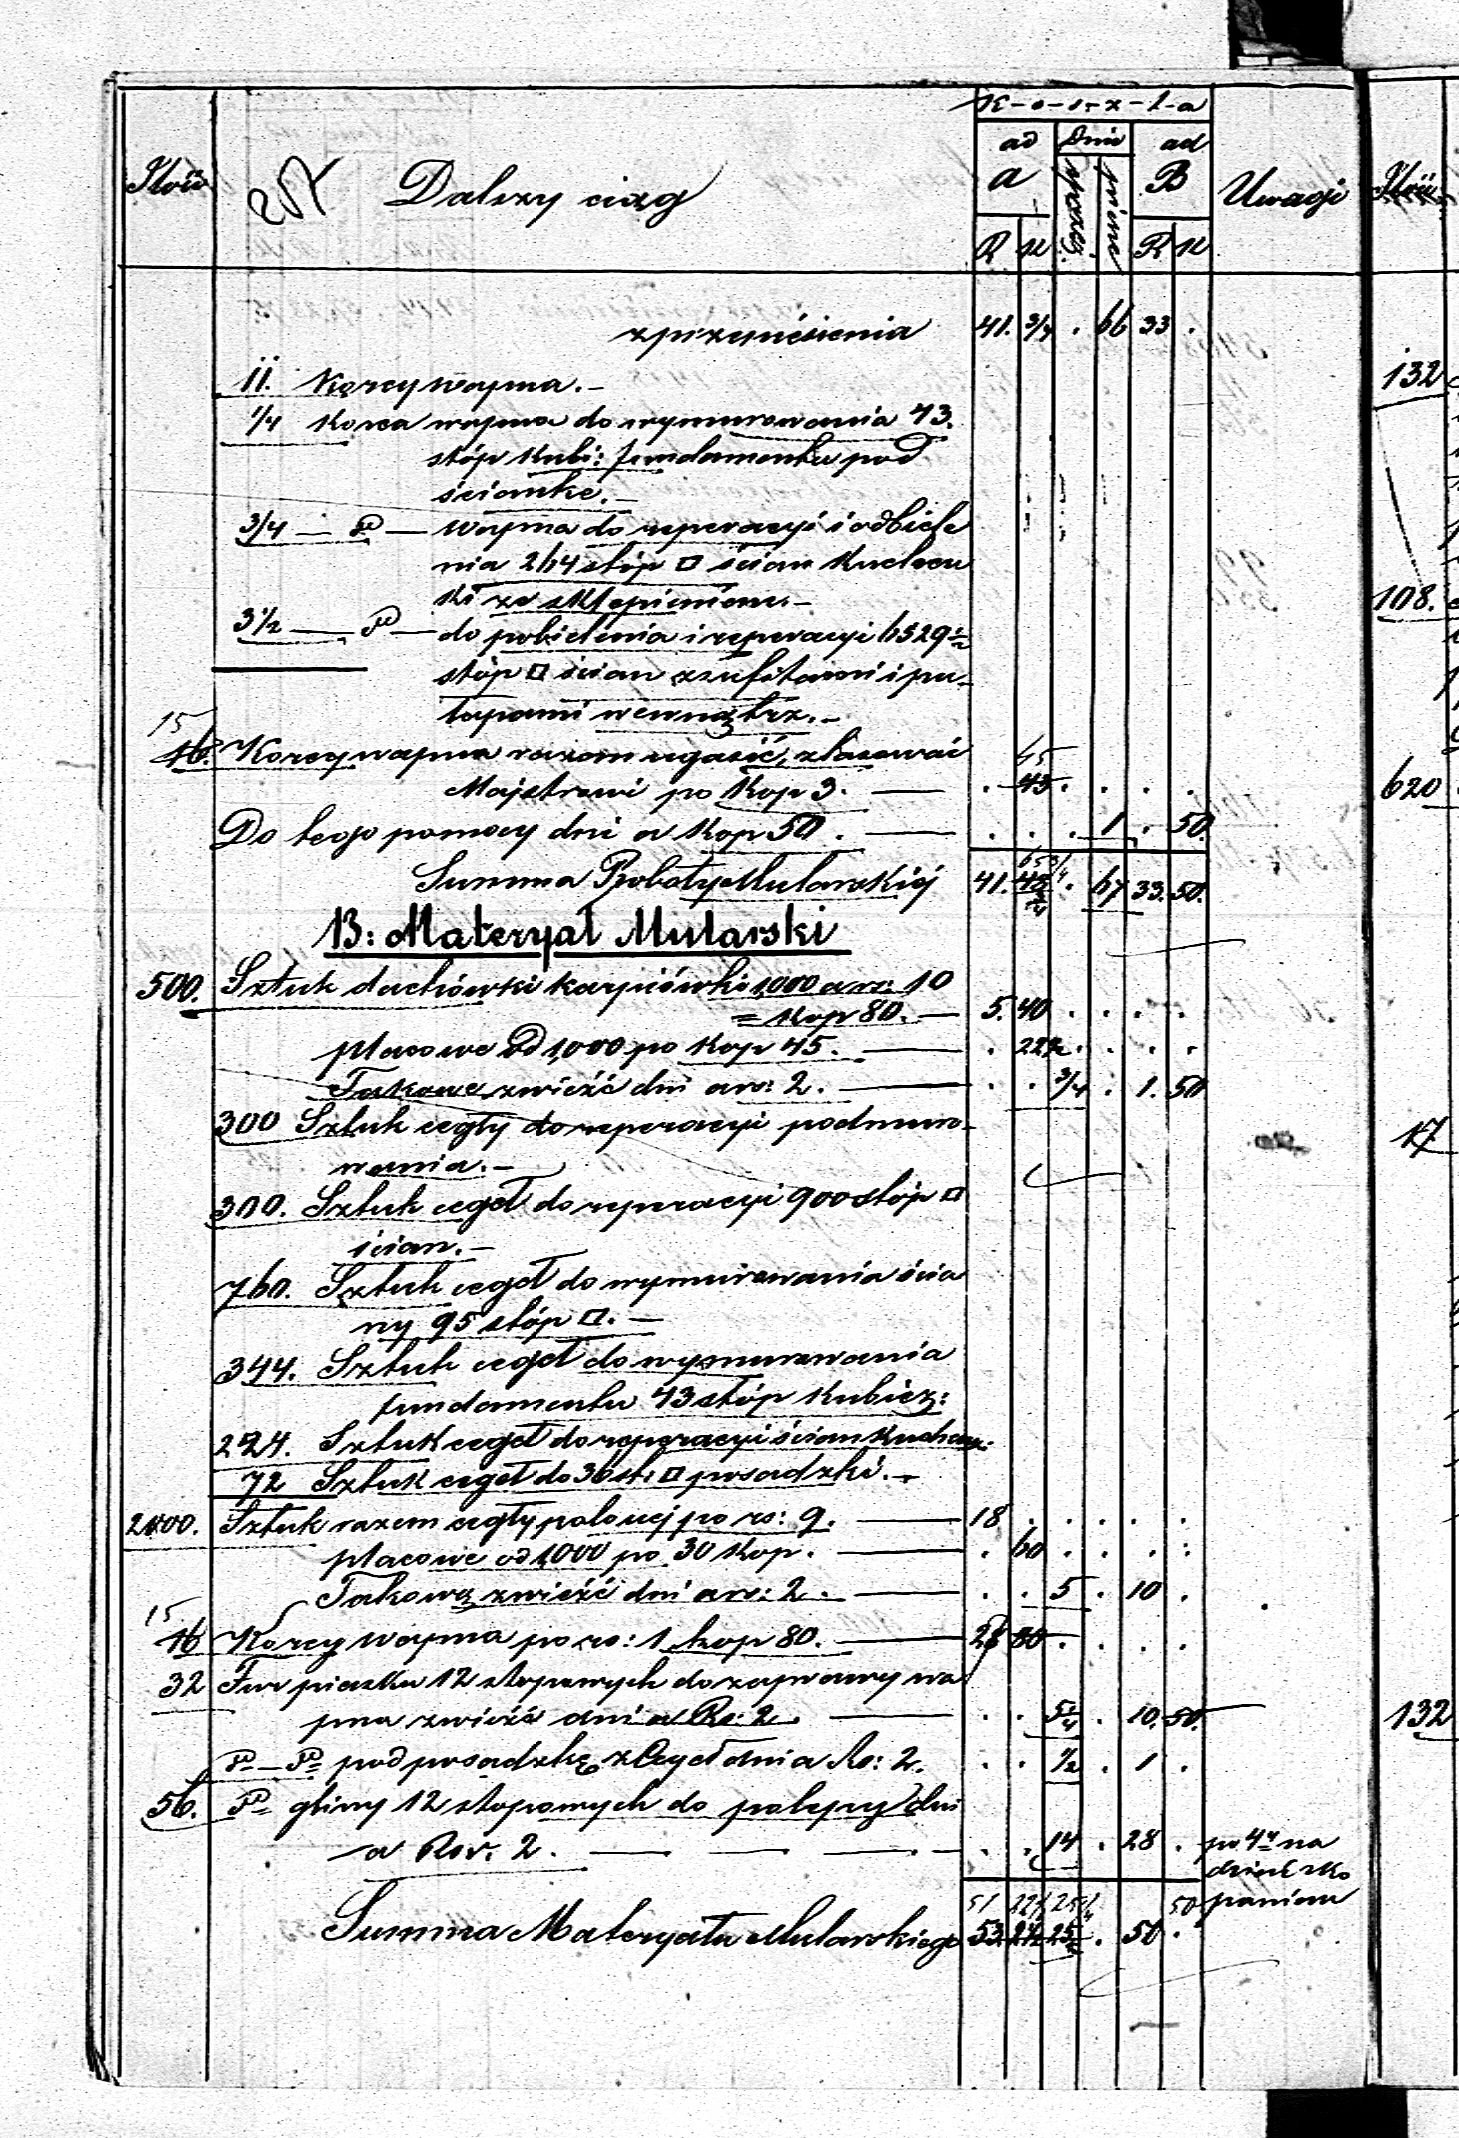 K-o-s-z-t-a
ad dnie ad
Ilość 207 Dalszy ciąg a sprzęż. piesze B Uwagi Ilość
R K R K
z przeniesienia 41. 3/4 . 66 33 .
11. Korcy wapna.- 132
1/4 Korca wapna do wymurowania 43.
stóp kubi: fundamentu pod
ściankę.-
3/4 — D — wapna do reperacyi i odbiele
nia 264 stóp □ ścian Kuchen
ki ze sklepieniem.- 108.
3 1/2 — D — do pobielenia i reperacyi 6529
stóp □ ścian z sufitami i pu-
łapami wewnątrz.-
15
16. Korcy wapna razem ugasić, zlasować 45
Majstrowi po Kop 3. — . 48 . . . . 620
Do tego pomocy dni a Kop 50. — . . . 1 . 50.
Summa Roboty Mularskiej 41. 48 3/4 . 67 33. 50.
B: Materyał Mularski
500. Sztuk dachówki karpiówki 1,000 a rs: 10
= Kop 80. — 5. 40 . . . .
placowe od 1,000 po Kop 45. — . 22 1/2 . . . .
Takowe zwieźć dni a rs: 2. — . . 3/4 . 1. 50
300 Sztuk cegły do reperacyi podmuro-
wania.- 17
300. Sztuk cegeł do reperacyi 900 stóp □
ścian.-
760. Sztuk cegeł do wymurowania ścia
ny 95 stóp □. —
344. Sztuk cegeł do wymurowania
fundamentu 43 stóp Kubicz:
224. Sztuk cegeł do reperacyi ścian Kuchen:
72 Sztuk cegeł do 36 st: □ posadzki.-
2000. Sztuk razem cegły palonej po rs: 9. — 18 . . . . .
placowe od 1,000 po 30 Kop. — . 60 . . . .
Takową zwieźć dni a rs: 2. — . . 5 . 10 .
15
16 Korcy wapna po rs: 1 kop 80. — 28 80 . . . .
32 Fur piasku 12 stopowych do zaprawy wa
pna zwieźć dni a Rs: 2. — . . 5 1/4 . 10. 50. 132
D — D pod posadzkę z Cegeł dnia Rs: 2. . . 1/2 . 1 .
56. D gliny 12 stopowych do polepy dni
a Rs. 2. — — — . . 14 . 28 . po 4 na
dzień z ko
51 22 1/2 25 1/2 50 paniem
Summa Materyału Mularskiego 53. 25 . 50 .